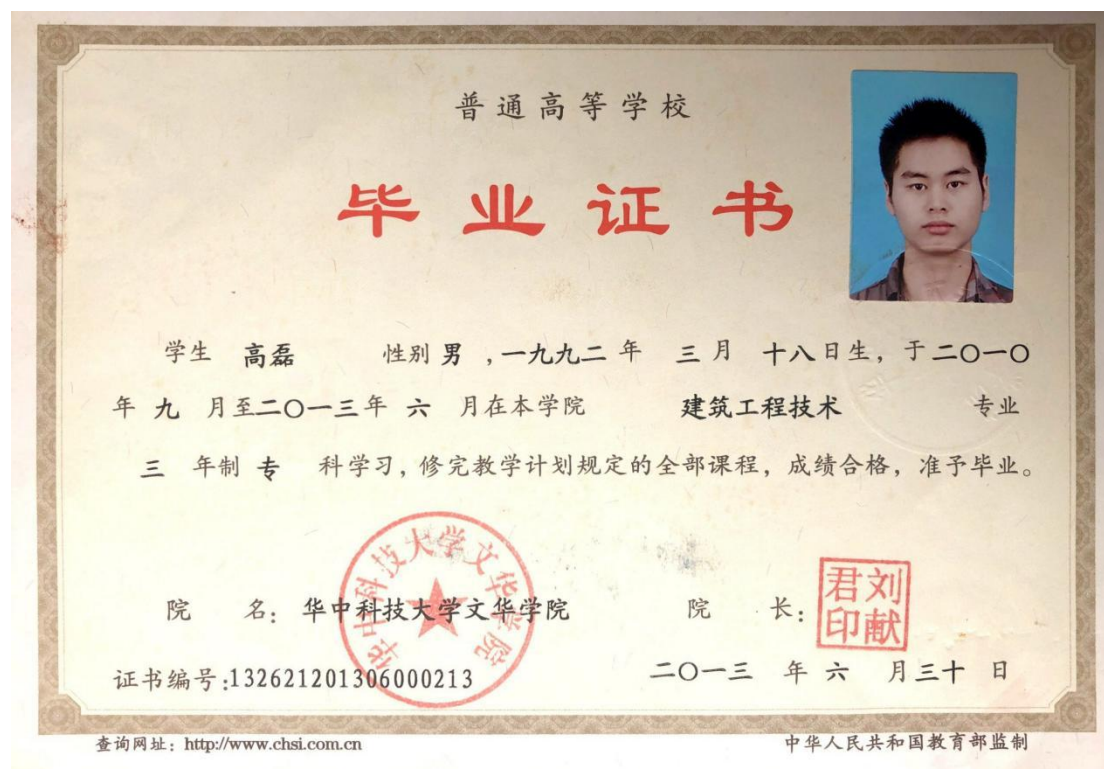 普通高等学校
毕业证书
学生 高磊 性别 男 ,一九九二 年 三 月 十八日生，于二〇一〇
年 九 月至二〇一三年 六 月在本学院 建筑工程技术 专业
三 年制 专 科学习，修完教学计划规定的全部课程，成绩合格，准予毕业。
华中科技大学文华学院
院 名：华中科技大学文华学院 院 长：刘献君印
证书编号:132621201306000213 二〇一三 年 六 月三十 日
查询网址：http://www.chsi.com.cn 中华人民共和国教育部监制